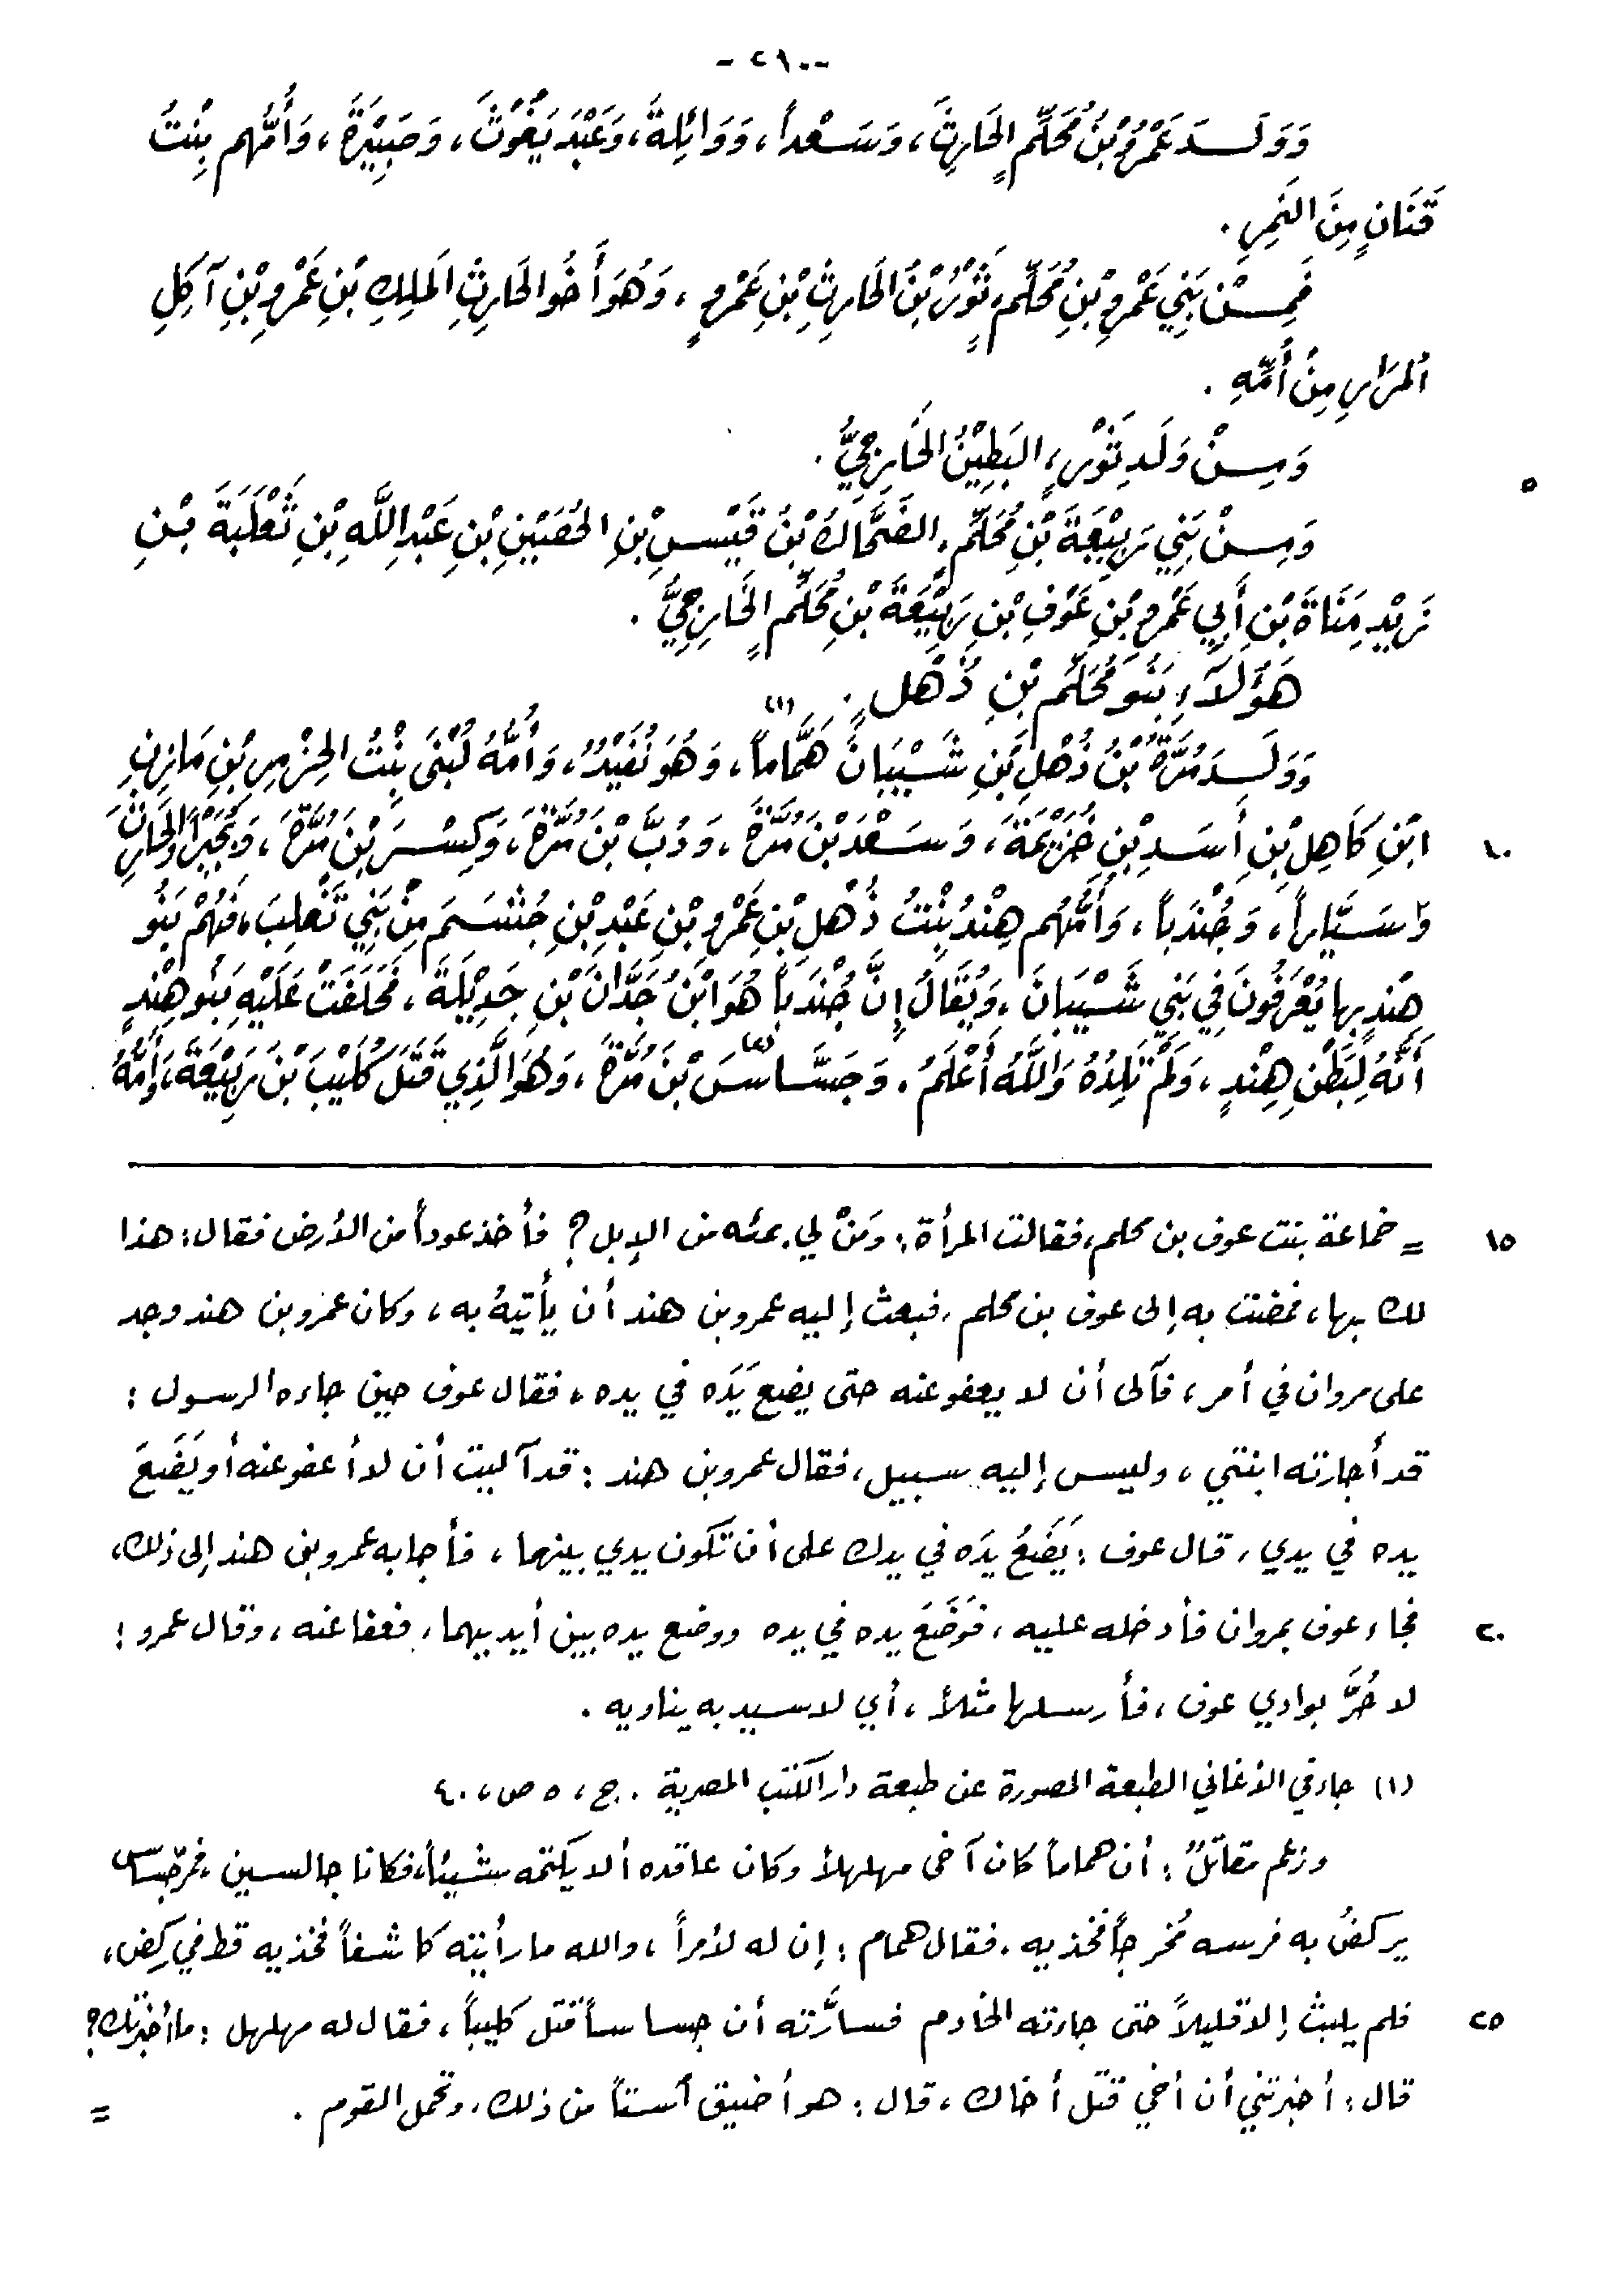 - ٢٩٠ -
وَوَلَـدَ عَمْرُو بْنُ مُحَلِّمٍ الحَارِثَ، وَسَعْداً، وَوَائِلةَ، وَعَبْدَ يَغُوْثَ، وَصَبِيْرَةَ، وَأُمُّهم بِنْتُ
قَنَانٍ مِنَ النَمِرِ .
فَمِـنْ بَنِي عَمْرِو بْنِ مُحَلِّمٍ ثَوْرُ بْنُ الحَارِثِ بْنِ عَمْرٍو، وَهُوَ أَخُو الحَارِثِ المَلِكِ بْنِ عَمْرِو بْنِ آكِلِ
المُرَارِ مِنْ أُمِّهِ .
٥ وَمِـنْ وَلَدِ ثَوْرٍ، البَطِيْنُ الخَارِجِيُّ .
وَمِـنْ بَنِي رَبِيْعَةَ بْنِ مُحَلِّمٍ، الضَحَّاكُ بْنُ قَيْسِ بْنِ الحُصَيْنِ بْنِ عَبْدِ اللَّهِ بْنِ ثَعْلَبَةَ بْـنِ
زَيْدِ مَنَاةَ بْنِ أَبِي عَمْرِو بْنِ عَوْفِ بْنِ رَبِيْعَةَ بْنِ مُحَلِّمٍ الخَارِجِيُّ .
هَؤُلَاَءِ بَنُو مُحَلِّم بْنِ ذُهْلٍ .
وَوَلَـدَ مُرَّةُ بْنُ ذُهْلِ بْنِ شَـيْبَانَ هَمَّاماً(١)، وَهُوَ نُفَيْدٌ، وَأُمُّهُ لُبْنَى بِنْتُ الحِزْمِرِ بْنِ مَازِنِ
١٠ ابْنِ كَاهِلِ بْنِ أَسَدِ بْنِ خُزَيْمَةَ، وَسَعْدَ بْنَ مُرَّةَ، وَدُبَّ بْنَ مُرَّةَ، وَكِسْـرَ بْنَ مُرَّةَ، وَبُجَيْراً وَالحَارِثَ
وَسَـيَّاراً، وَجُنْدَباً، وَأُمُّهُم هِنْدُ بِنْتُ ذُهْلِ بْنِ عَمْرِو بْنِ عَبْدِ بْنِ جُشَـمَ مِنْ بَنِي تَغْلِبَ، فَهُمْ بَنُو
هِنْدٍ بها يُعْرَفُونَ فِي بَنِي شَـيْبَانَ، وَيُقَالُ إِنَّ جُنْدَباً هُوَ ابْنُ جَدَّانَ بْنِ جَدِيْلَةَ، فَحَلَفَتْ عَلَيْهِ بَنُو هِنْدٍ
أَنَّهُ لِبَطْنِ هِنْدٍ، وَلَمْ تَلِدْهُ وَاللَّهُ أَعْلَمُ. وَجَسَّاسَ(٢) بْنَ مُرَّةَ، وَهُوَ الَّذِي قَتَلَ كُلَيْبَ بْنَ رَبِيْعَةَ، وَأُمُّهُ
١٥ = خماعة بنت عوف بن محلم، فقالت المرأة: ومَنْ لي بمئه من الإبل؟ فأخذ عوداً من الأرض فقال: هذا
لك بها، فمضت به إلى عوف بن محلم، فبعث إليه عمرو بن هند أن يأتيهُ به، وكان عمرو بن هند وجد
على مروان في أمر، فآلى أن لا يعفو عنه حتى يضع يَدَه في يده، فقال عوف حين جاءه الرسول:
قد أجارته ابنتي، وليس إليه سبيل، فقال عمرو بن هند: قد آليت أن لا أعفو عنه أو يَضَعَ
يده في يدي، قال عوف: يَضَعُ يدَه في يدك على أن تكون يدي بينهما، فأجابه عمرو بن هند إلى ذلك،
٢٠ فجاء عوف بمروان فأدخله عليه، فَوَضَعَ يده في يده ووضع يده بين أيديهما، فعفا عنه، وقال عمرو:
لا حُرَّ بوادي عوف، فأرسلها مثلاً، أي لا سيد به يناويه .
(١) جاء في الأغاني الطبعة المصورة عن طبعة دار الكتب المصرية . ج، ٥ ص، ٤٠
وزعم مقاتلٌ: أن هماماً كان آخى مهلهلاً وكان عاقده ألا يكتمه شيئاً، فكانا جالسين، فمرّ جسّاس
يركضُ به فرسه مُخرجاً فخذيه، فقال همام: إن له لأمراً، والله ما رأيته كاشفاً فخذيه قط في ركض،
٢٥ فلم يلبث إلا قليلاً حتى جاءته الخادم فسارَّته أن جساساً قتل كليباً، فقال له مهلهل: ما أخبرتك؟
قال: أخبرتني أن أخي قتل أخاك، قال: هو أضيق آستاً من ذلك، وتحمل القوم . =